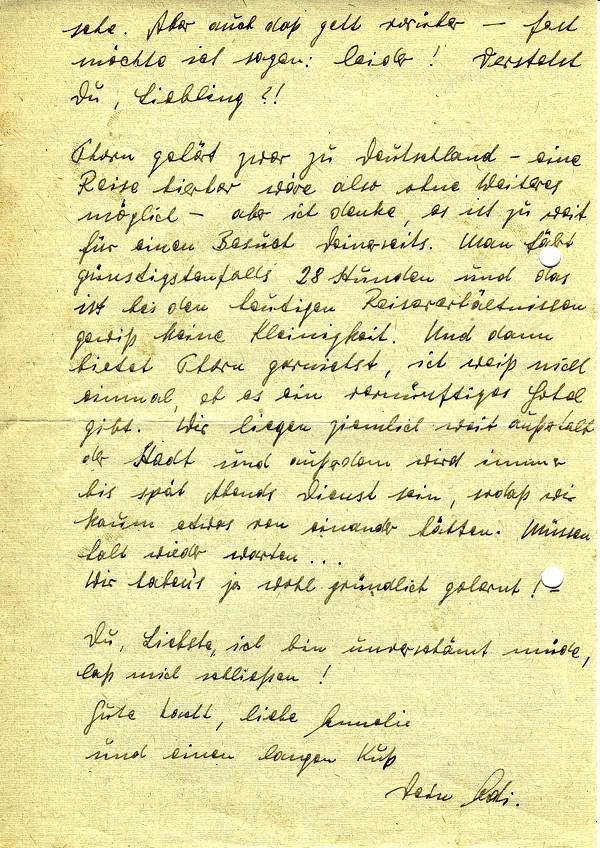 sehe. Aber auch daß geht vorüber – fast
möchte ich sagen: leider! Verstehst
Du, Liebling?!
Thorn gehört zwar zu Deutschland – eine
Reise hierher wäre also ohne Weiteres
möglich – aber ich denke, es ist zu weit
für einen Besuch Deinerseits. Man fährt
günstigstenfalls 28 Stunden und das
ist bei den heutigen Reiseverhältnissen
gewiß keine Kleinigkeit. Und dann
bietet Thorn garnichts, ich weiß nicht
einmal, ob es ein vernünftiges Hotel
gibt. Wir liegen ziemlich weit außerhalb
der Stadt und außerdem wird immer
bis spät Abends Dienst sein, sodaß wir
kaum etwas von einander hätten. Müssen
halt wieder warten...
Wir haben's ja wohl gründlich gelernt! –
Du, Liebste, ich bin unverschämt müde,
laß mich schließen!
Gute Nacht, liebe Annelie
und einen langen Kuß
Dein Adi.